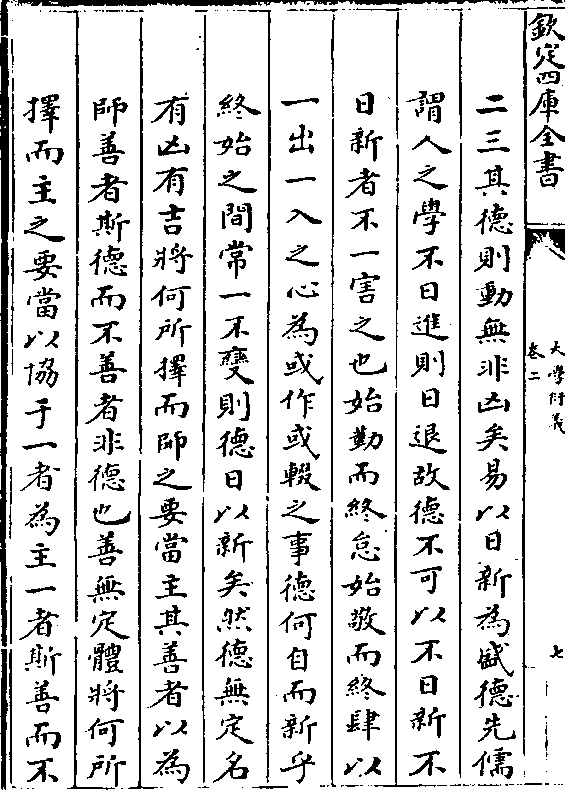 欽定四庫全書
大學衍義
卷二
七
二三其德則動無非凶矣易以日新為盛德先儒
謂人之學不日進則日退故德不可以不日新不
日新者不一害之也始勤而終怠始敬而終肆以
一出一入之心為或作或輟之事德何自而新乎
終始之間常一不變則德日以新矣然德無定名
有凶有吉將何所擇而師之要當主其善者以為
師善者斯德而不善者非德也善無定體將何所
擇而主之要當以協于一者為主一者斯善而不